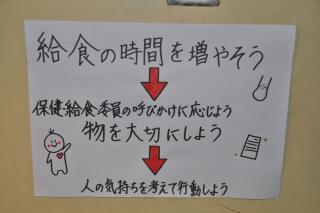 給食の時間を増やそう
保健・給食委員の呼びかけに応じよう
物を大切にしよう
人の気持ちを考えて行動しよう